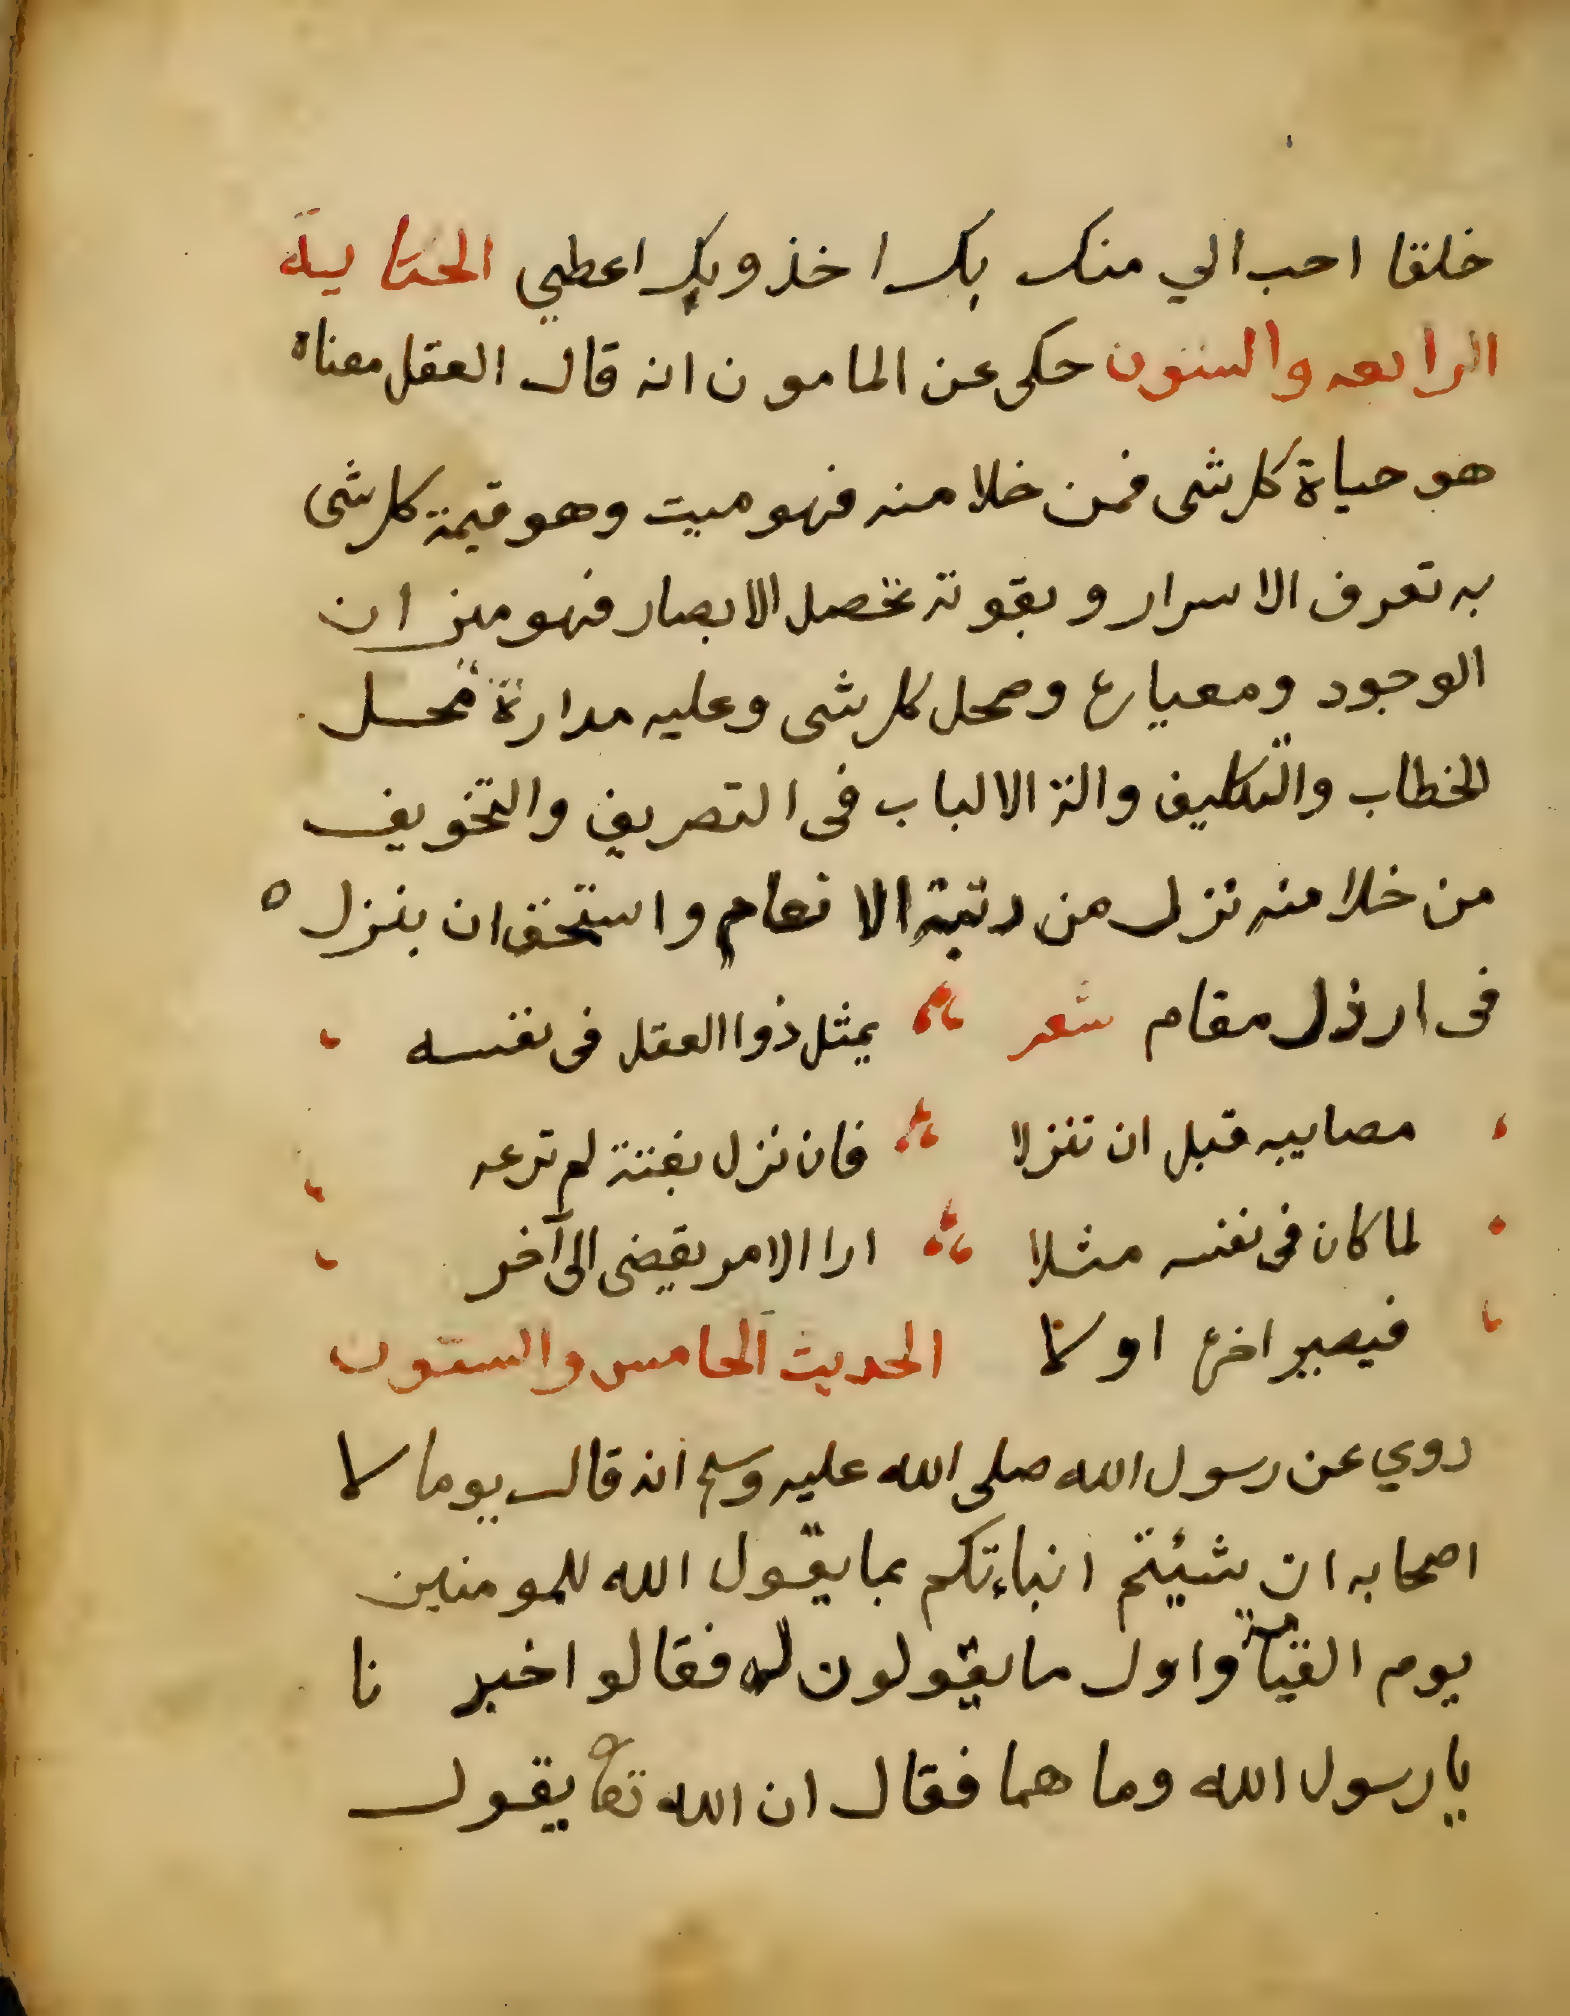 خلقا احب الي منك بك اخذ وبك اعطي الحتاية
الرابعه والستون حكى عن المامون انه قال العقل معناه
هو حياة كل شى فمن خلا منه فهو ميت وهو قيمة كل شى
به تعرف الاسرار وبقوته تحصل الابصار فهو ميزان
الوجود ومعياره ومحل كل شى وعليه مداره محل
الخطاب والتكليف والة الالباب فى التصريف والتخويف
من خلا منه نزل من رتبة الانعام واستحق ان ينزل
فى ارذل مقام شعر يمثل ذوا العقل فى نفسه
مصايبه قبل ان تنزلا فان نزل بغتة لم ترعه
لما كان فى نفسه مثلا ارا الامر يقضى الى آخر
فيصير اخره اولا الحديث الخامس والستون
روي عن رسول الله صلى الله عليه وسلم انه قال يوما لا
اصحابه ان شيئتم انباءتكم بما يقول الله للمومنين
يوم القيامة واول ما يقولون له فقالو اخبر نا
يا رسول الله وما هما فقال ان الله تعا يقول